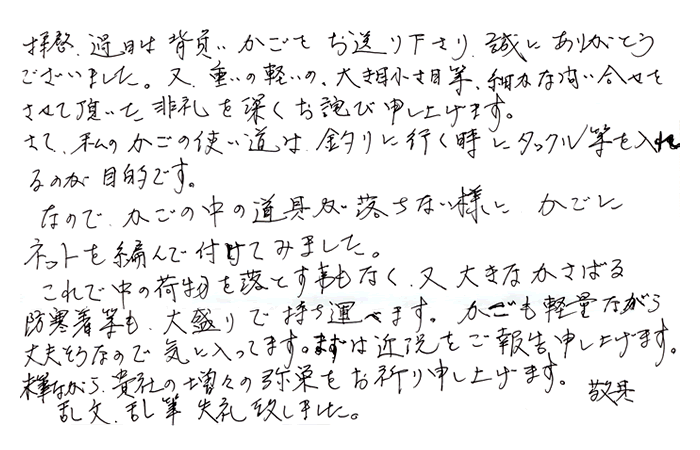 拝啓、過日は背負いかごをお送り下さり、誠にありがとう
ございました。又、重いの軽いの、大き目小さ目等、細かな問い合せを
させて頂いた非礼を深くお詫び申し上げます。
さて、私のかごの使い道は、釣りに行く時にタックル等を入れ
るのが目的です。
なので、かごの中の道具が落ちない様に かごに
ネットを編んで付けてみました。
これで中の荷物を落とす事もなく、又大きなかさばる
防寒着等も、大盛りで持ち運べます。かごも軽量ながら
丈夫そうなので気に入ってます。まずは近況をご報告申し上げます。
末筆ながら、貴社の増々の弥栄をお祈り申し上げます。 敬具
乱文、乱筆 失礼致しました。